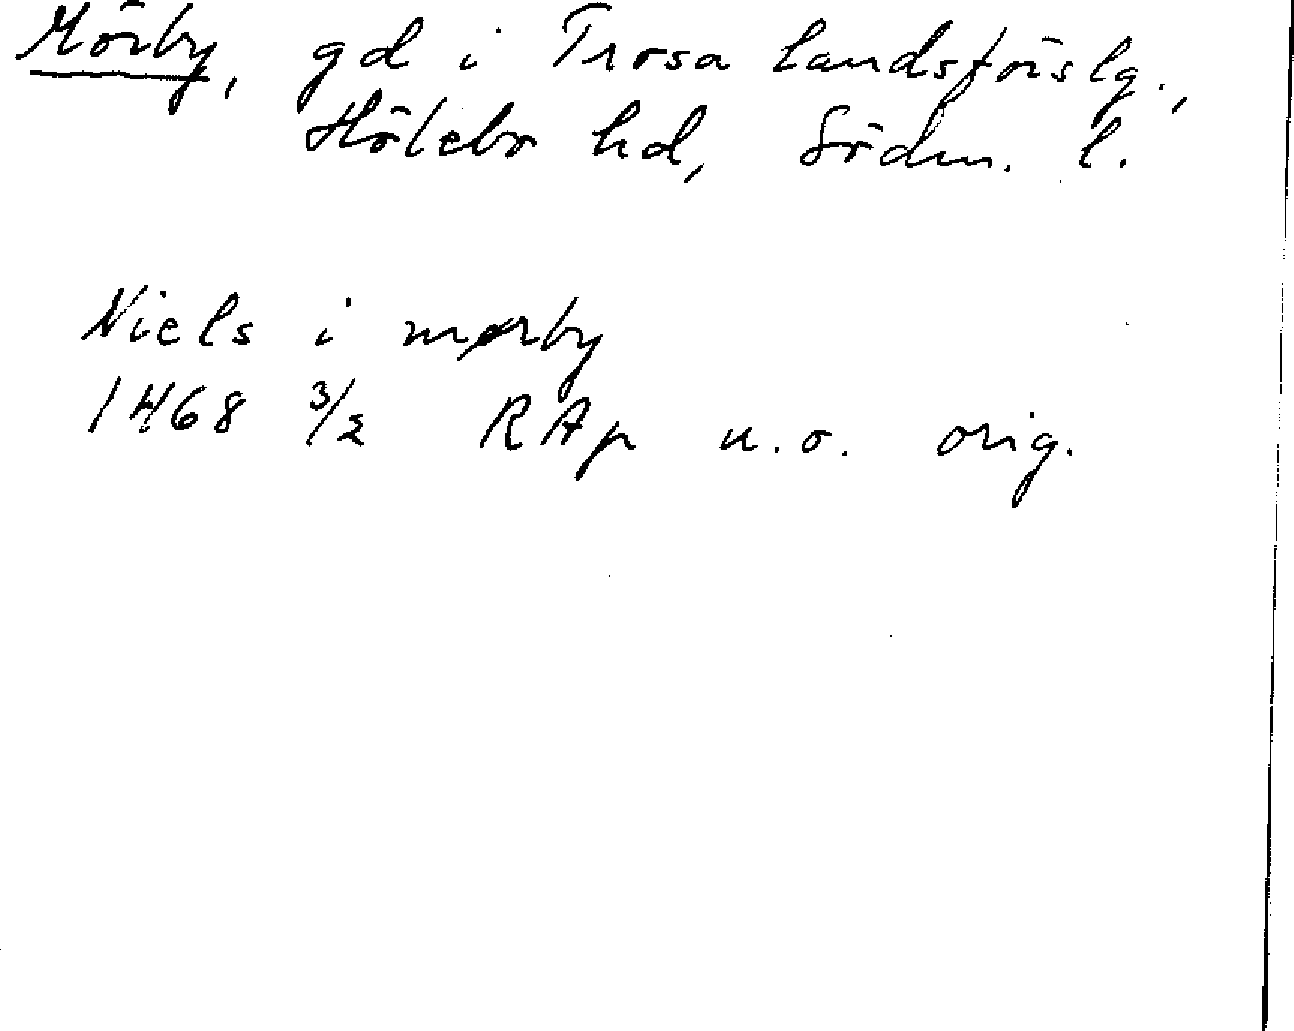 Mörby, gd i Trosa landsförslg.,
Hölebo hd, Södm. l.
Niels i mørby
1468 3/2 RAp u.o. orig.